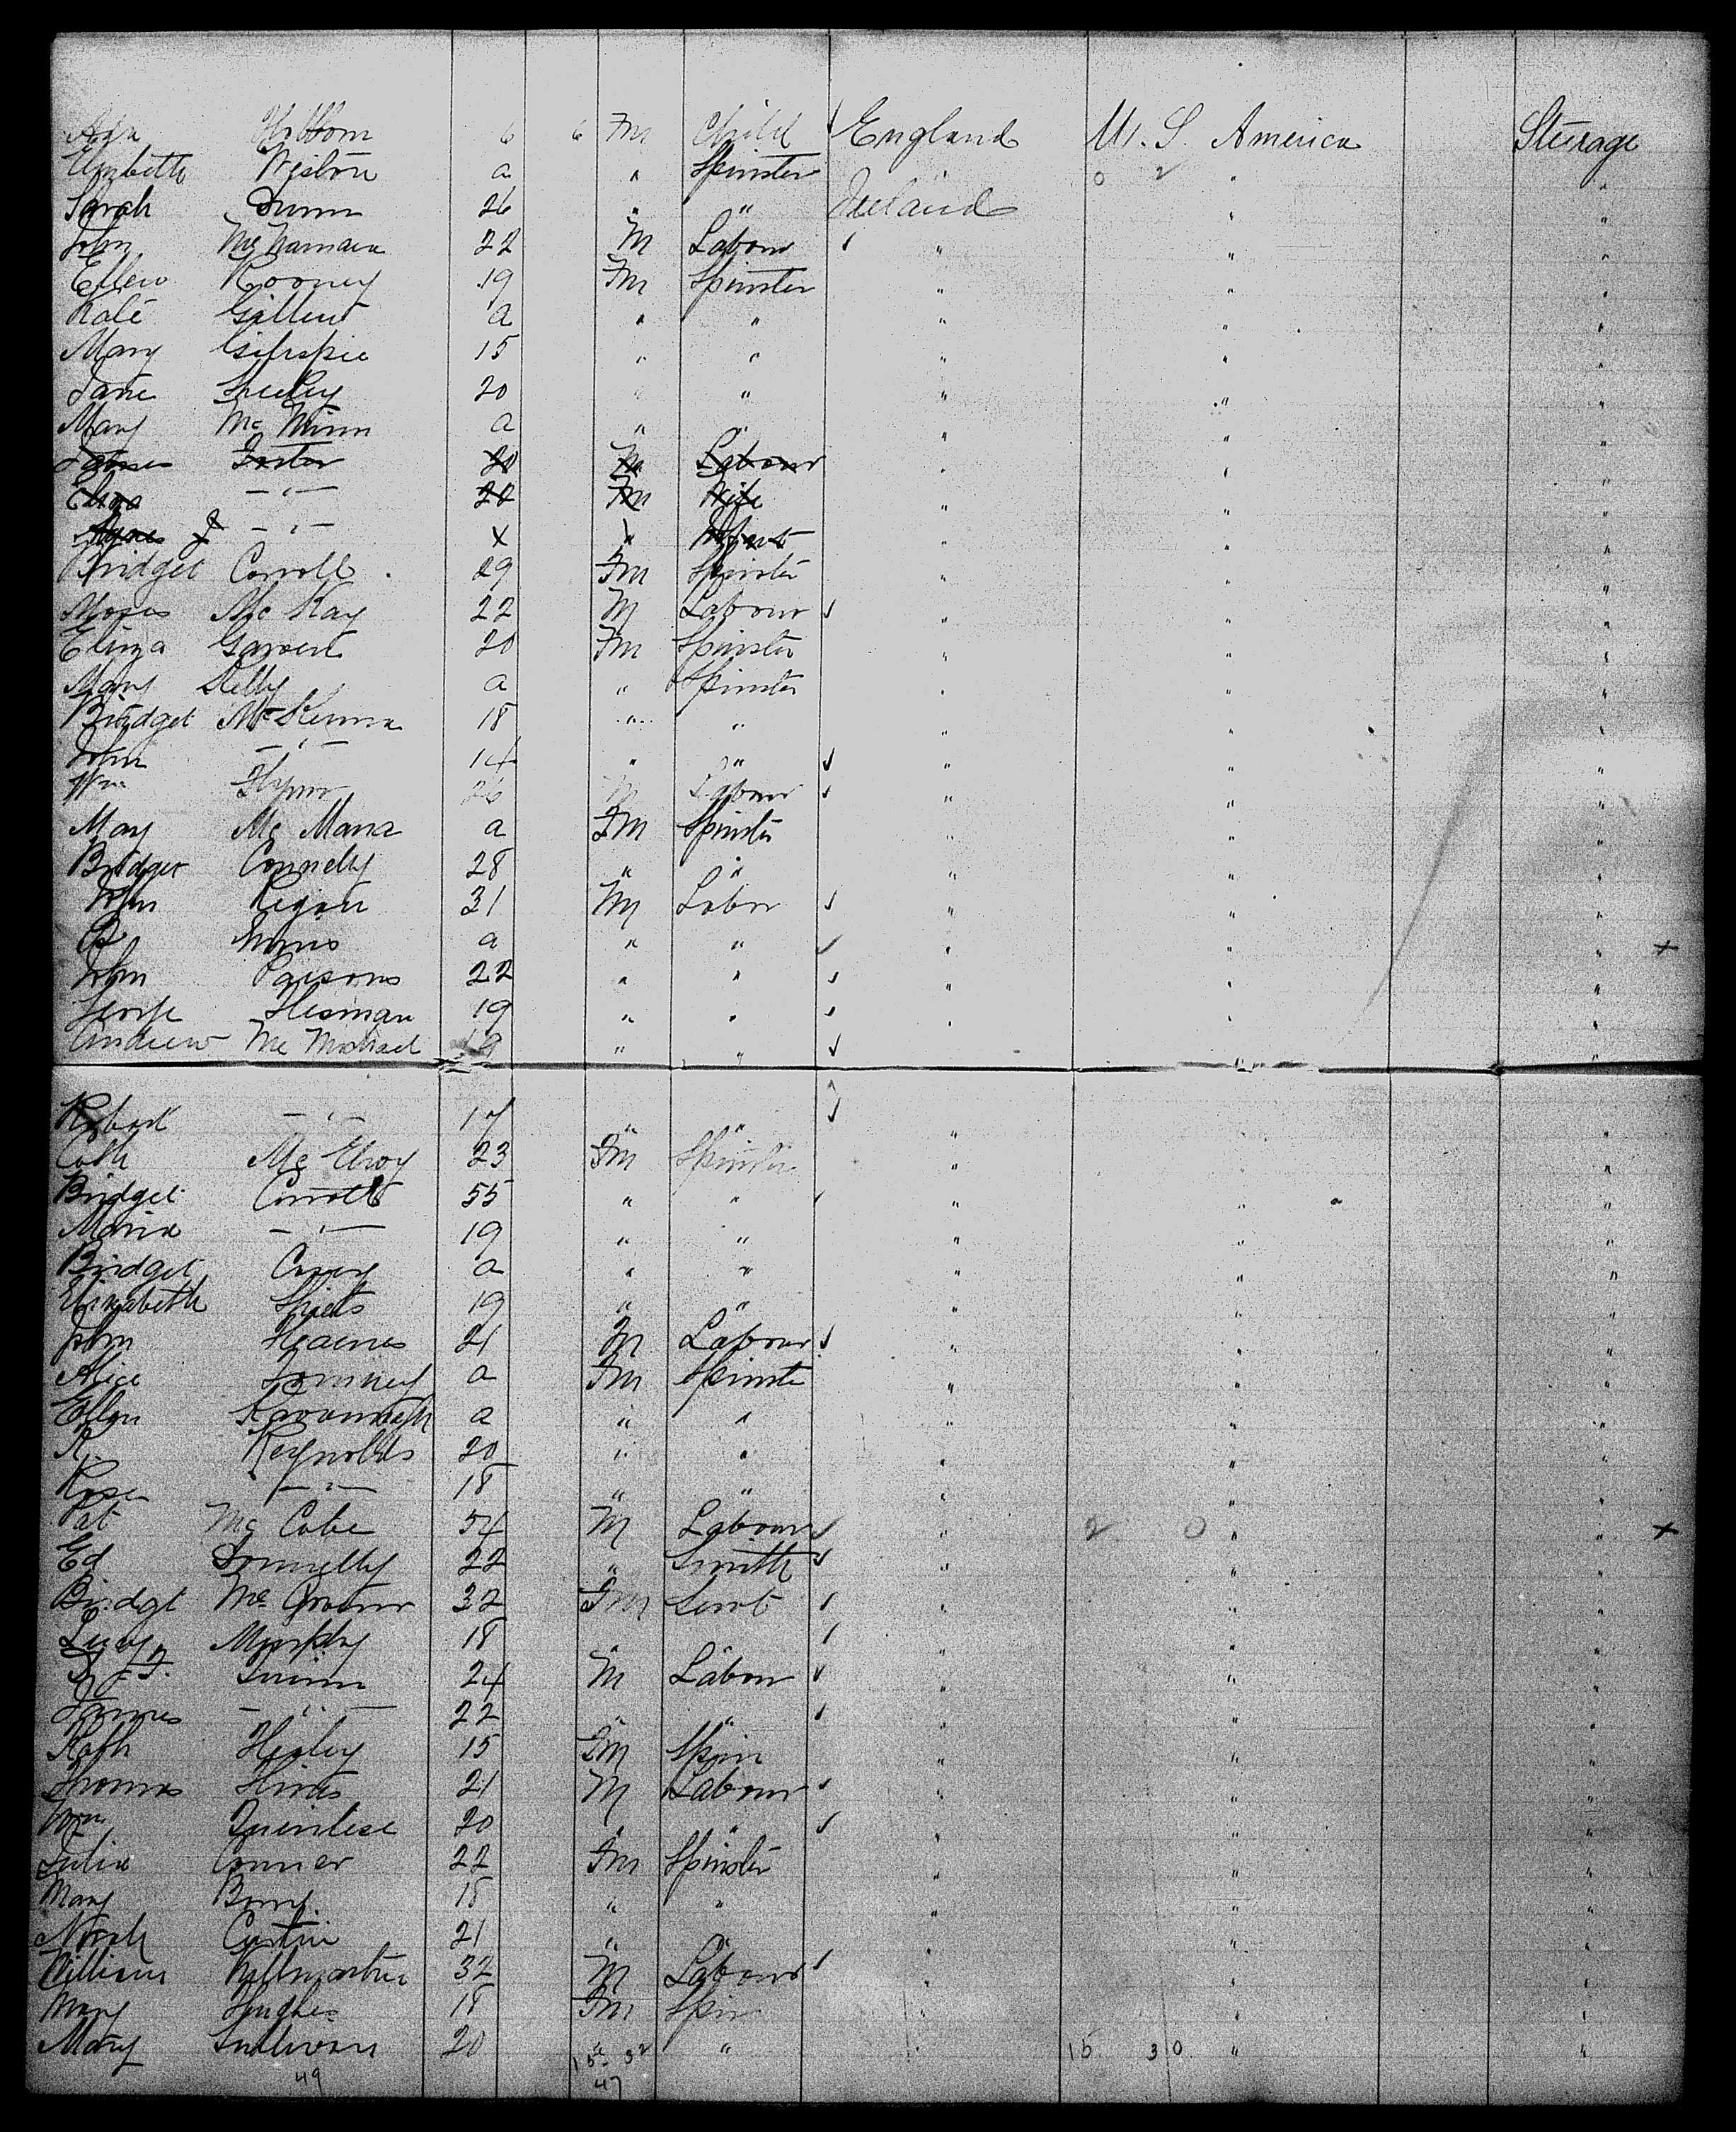 Ada Hobbom 6 6 Fm Child ✓ England U. S. America Steerage
Elizabeth Weston a " Spinster " 0 2 " "
Sarah Dunn 26 " " Ireland " "
John McNamara 22 M Labour ✓ " " "
Ellen Rooney 19 Fm Spinster " " "
Kate a " " " " "
Mary 15 " " " " "
Jane 20 " " " " "
Mary Mc Minn a " " " " "
James Foster 20 M Labour " " "
Eliza — " — 20 Fm Wife " " "
Agnes J — " — " Infant " " "
Bridget Carroll 29 Fm Spinster " " "
Moses Mc Kay 22 M Labour ✓ " " "
Eliza 20 Fm Spinster " " "
Mary Kelly a " Spinster " " "
Bridget McKenna 18 " " " " "
John — " — 14 " " ✓ " " "
Wm Flynn 26 M Labour ✓ " " "
May Mc Mana a Fm Spinster " " "
Bridget Connelly 28 " " " " "
John Regan 31 M Labor ✓ " " "
a " " ✓ " " " +
John Parsons 22 " " ✓ " " "
George Hesman 19 " " ✓ " " "
Andrew Mc Michael 19 " " ✓ " "
Robert — " — 17 " " ✓ " " "
Cath Mc Elroy 23 Fm Spinster " " "
Bridget Carroll 55 " " ✓ " " "
Maria — " — 19 " " " " "
Bridget a " " " " "
Elizabeth Shiels 19 " " " " "
John Heaines 21 M Labour ✓ " " "
Alice a Fm Spinste " " "
Ellen Kavannagh a " " " " "
R. Reynolds 20 " " " " "
Rose — " — 18 " " " " "
Pat Mc Cabe 54 M Labour ✓ " 2 0 " " +
Ed Donnelly 22 " Smith ✓ " " "
Bridgt Mc 32 Fm Servt ✓ " " "
Lucy Murphy 18 " " ✓ " " "
Quinn 24 M Labour ✓ " " "
James — " — 22 " " ✓ " " "
Kath Healey 15 Fm Spin " " "
Thomas Hines 21 M Labour ✓ " " "
Wm Quinlese 20 " " ✓ " " "
Julia Conner 22 Fm Spinster " " "
Mary 18 " " " " "
Norah Curtin 21 " " " " "
William 32 M Labour ✓ " " "
Mary Hughes 18 Fm Spin " " "
Mary Sullivan 20 " " " 15 30 " "
49 15 32
47